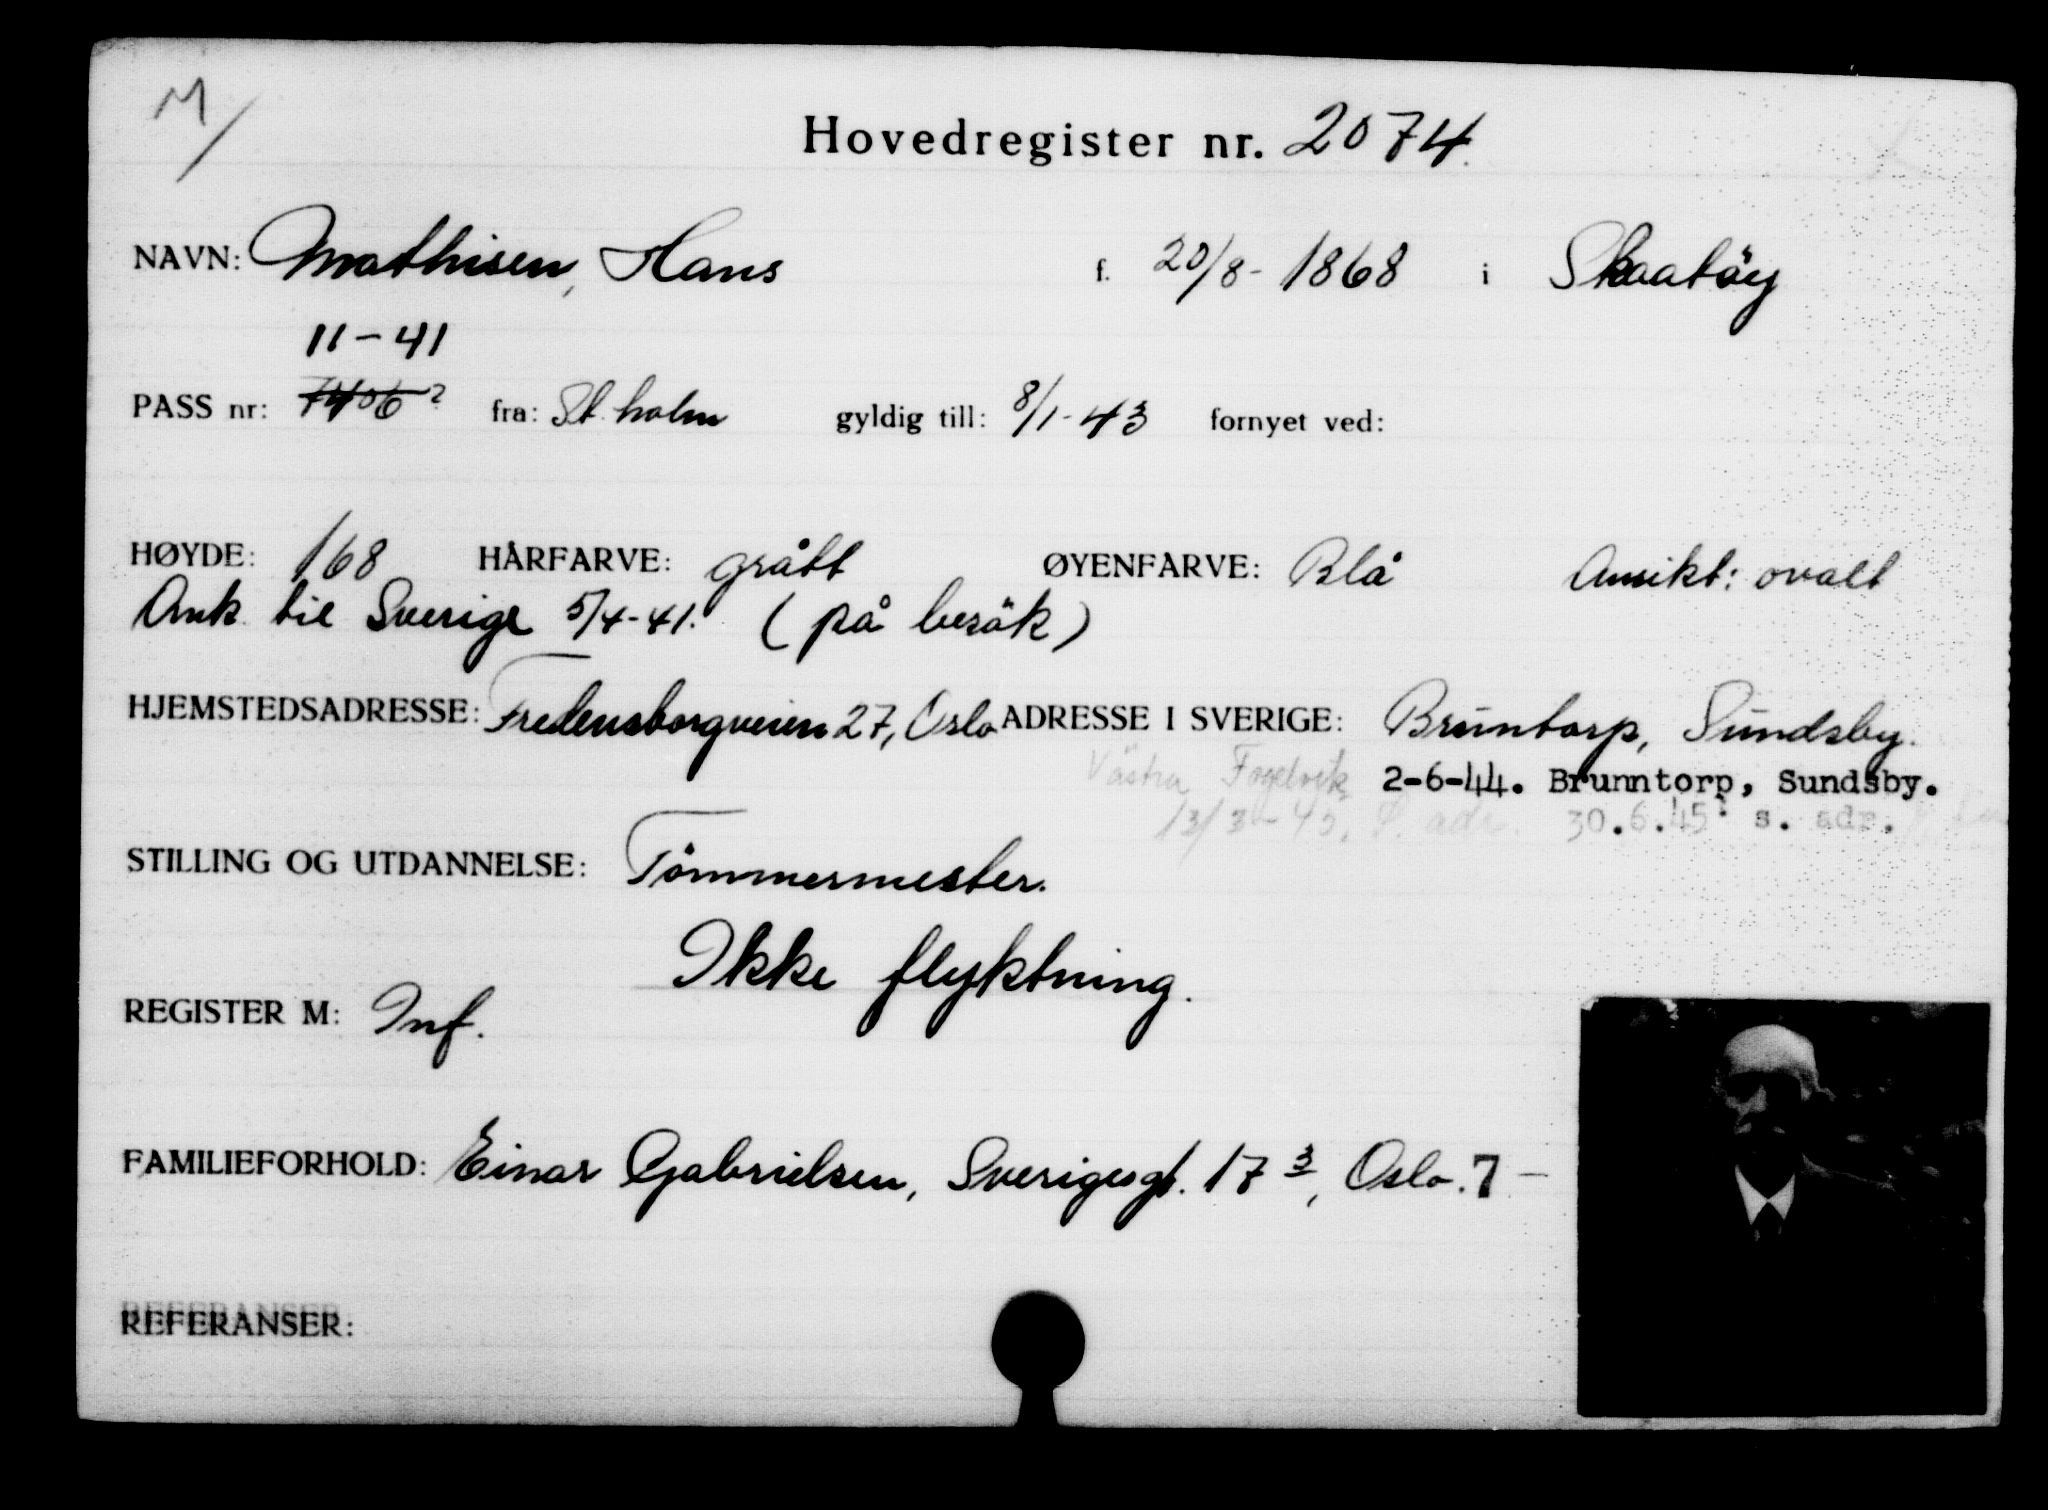 M/
Hovedregister nr. 2074.
NAVN: Mathisen, Hans f. 20/8 - 1868 i Skaatöy
11-41
PASS nr: 7406? fra: St. holm gyldig till: 8/1-43 fornyet ved:
HØYDE: 168 HÅRFARVE: grått ØYENFARVE: Blå Ansikt: ovalt
Ank. til Sverige 5/4-41. (på besök)
HJEMSTEDSADRESSE: Fredensborgveien 27, Oslo ADRESSE I SVERIGE: Bruntorp, Sundsby.
Västra 2-6-44. Brunntorp, Sundsby.
13/3-45, adr. 30.6.45: s. adr.
STILLING OG UTDANNELSE: Tömmermester.
Ikke flyktning.
REGISTER M: Inf.
FAMILIEFORHOLD: Einar Gabrielsen, Sverigesgt. 17 3, Oslo. 7 -
REFERANSER: